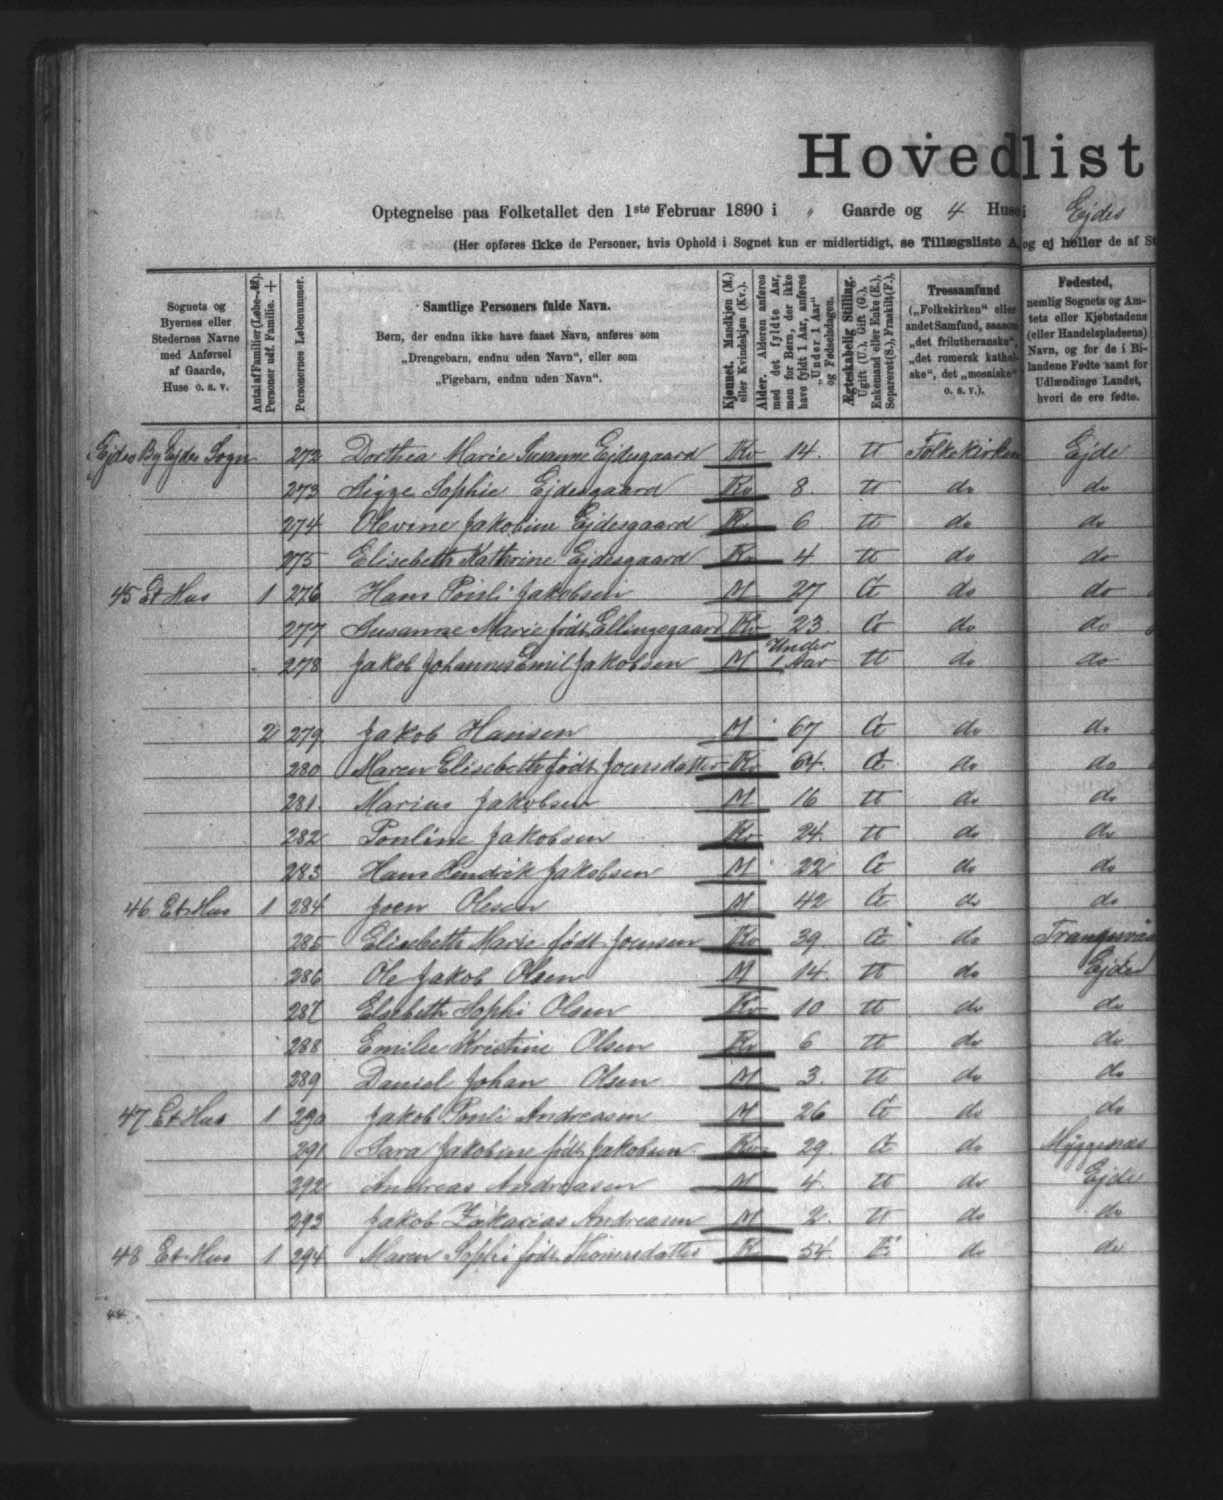 Hovedlist
Optegnelse paa Folketallet den 1ste Februar 1890 i " Gaarde og 4 Huse i Ejdes
(Her opføres ikke de Personer, hvis Ophold i Sognet kun er midlertidigt, se Tillægsliste A, og ej heller de af St
Sognets og Byernes eller Stedernes Navne med Anførsel af Gaarde, Huse o. s. v.
Antal af Familier (Løbe-№). Personer udf. Familie. +
Personernes Løbenummer.
Samtlige Personers fulde Navn.
Børn, der endnu ikke have faaet Navn, anføres som
„Drengebarn, endnu uden Navn“, eller som
„Pigebarn, endnu uden Navn“.
Kjønnet. Mandkjøn (M.) eller Kvindekjøn (Kv.).
Alder. Alderen anføres med det fyldte Aar, men for Børn, der ikke have fyldt 1 Aar, anføres „Under 1 Aar“ og Fødselsdagen.
Ægteskabelig Stilling. Ugift (U.), Gift (G.), Enkemand eller Enke (E.), Separeret (S.), Fraskilt (F.).
Trossamfund („Folkekirken“ eller andet Samfund, saasom „det frilutheranske“, „det romersk katholske“, det „mosaiske“ o. s. v.).
Fødested, nemlig Sognets og Amtets eller Kjøbstadens (eller Handelspladsens) Navn, og for de i Bilandene Fødte samt for Udlændinge Landet, hvori de ere fødte.
Ejdes By Ejdes Sogn 272 Dorthea Marie Susanne Ejdesgaard Kv 14. U Folkekirken Ejde
273 Sigge Sophie Ejdesgaard Kv 8. U do do
274 Olevine Jakobine Ejdesgaard Kv 6 U do do
275 Elisebeth Katrine Ejdesgaard Kv 4 U do do
45 Et Hus 1 276 Hans Pouli Jakobsen M 27 G do do
277 Susanne Marie født Ellingegaard Kv 23. G do do
278 Jakob Johannes Emil Jakobsen M Under 1 Aar U do do
2 279 Jakob Hansen M 67 G do do
280 Maren Elisebeth født Joensdatter Kv 64. G do do
281 Marius Jakobsen M 16 U do do
282 Pouline Jakobsen Kv 24. U do do
283 Hans Hendrik Jakobsen M 22 G do do
46 Et Hus 1 284 Joen Olesen M 42 G do do
285 Elisebeth Marie født Joensen Kv 39. G do
286 Ole Jakob Olsen M 14. U do Ejde
287 Elsebeth Sophi Olsen Kv 10 U do do
288 Emilie Kristine Olsen Kv 6 U do do
289 Daniel Johan Olsen M 3. U do do
47 Et Hus 1 290 Jakob Pouli Andreasen M 26 G do do
291 Sara Jakobine født Jakobsen Kv 29. G do Myggenæs
292 Andreas Andreasen M 4. U do Ejde
293 Jakob Zakarias Andreasen M 2. U do do
48 Et Hus 1 294 Maren Sophi født Thomsdatter K 54. E do do
44